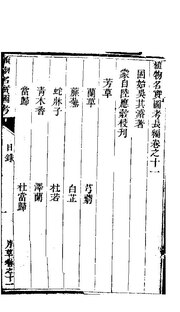 植物名實圖考長編卷之十一
固始吳其濬著
蒙自陸應榖校刊
芳草
蘭草
芎藭
蘼蕪
白芷
蛇牀子
杜若
青木香
澤蘭
當歸
杜當歸
植物名實圖考
目錄
芳草卷之十一